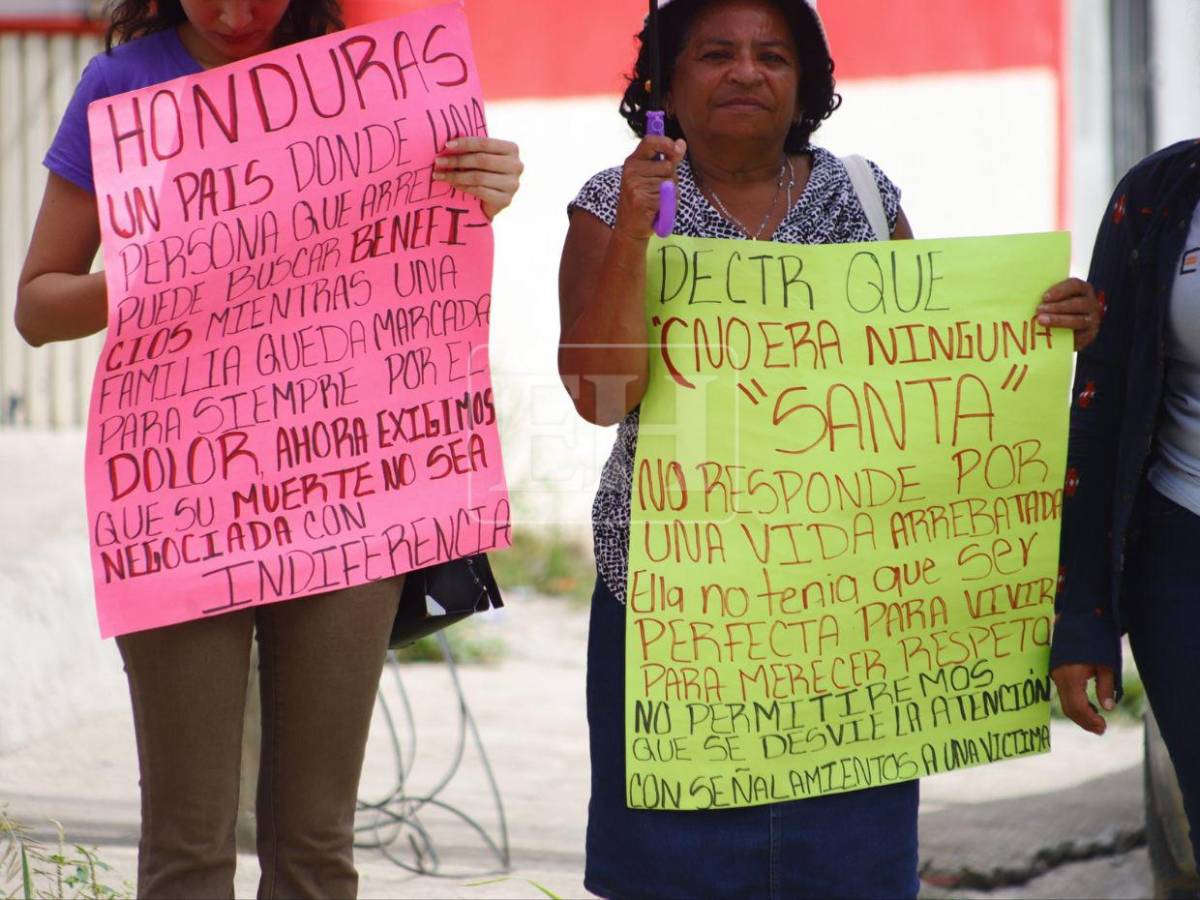 HONDURAS
UN PAIS DONDE UNA
PERSONA QUE ARREB
PUEDE BUSCAR BENEFI-
CIOS MIENTRAS UNA
FAMILIA QUEDA MARCADA
PARA SIEMPRE POR EL
DOLOR, AHORA EXIGIMOS
QUE SU MUERTE NO SEA
NEGOCIADA CON
INDIFERENCIA
DECIR QUE
"(NO ERA NINGUNA
"SANTA"
NO RESPONDE POR
UNA VIDA ARREBATADA
Ella no tenia que ser
PERFECTA PARA VIVIR
PARA MERECER RESPETO
NO PERMITIREMOS
QUE SE DESVIE LA ATENCIÓN
CON SEÑALAMIENTOS A UNA VICTIMA
EH